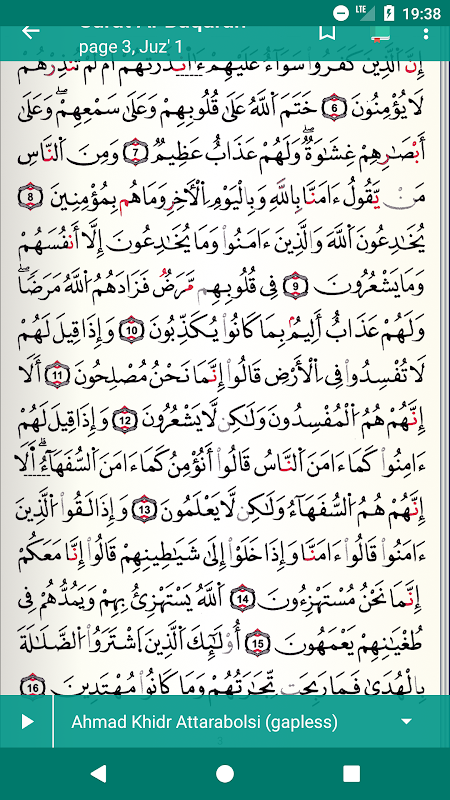 19:38
LTE
Surat Al-Baqarah
page 3, Juz' 1
إِنَّ ٱلَّذِينَ كَفَرُوا۟ سَوَآءٌ عَلَيْهِمْ ءَأَنذَرْتَهُمْ أَمْ لَمْ تُنذِرْهُمْ
لَا يُؤْمِنُونَ 6 خَتَمَ ٱللَّهُ عَلَىٰ قُلُوبِهِمْ وَعَلَىٰ سَمْعِهِمْ ۖ وَعَلَىٰ
أَبْصَٰرِهِمْ غِشَٰوَةٌ ۖ وَلَهُمْ عَذَابٌ عَظِيمٌ 7 وَمِنَ ٱلنَّاسِ
مَنْ يَّقُولُ ءَامَنَّا بِٱللَّهِ وَبِٱلْيَوْمِ ٱلْأَخِرِ وَمَا هُم بِمُؤْمِنِينَ 8
يُخَٰدِعُونَ ٱللَّهَ وَٱلَّذِينَ ءَامَنُوا۟ وَمَا يُخَٰدِعُونَ إِلَّا أَنفُسَهُمْ
وَمَا يَشْعُرُونَ 9 فِى قُلُوبِهِم مَّرَضٌ فَزَادَهُمُ ٱللَّهُ مَرَضًا ۖ
وَلَهُمْ عَذَابٌ أَلِيمٌۢ بِمَا كَانُوا۟ يُكَذِّبُونَ 10 وَإِذَا قِيلَ لَهُمْ
لَا تُفْسِدُوا۟ فِى ٱلْأَرْضِ قَالُوٓا۟ إِنَّمَا نَحْنُ مُصْلِحُونَ 11 أَلَا
إِنَّهُمْ هُمُ ٱلْمُفْسِدُونَ وَلَٰكِن لَّا يَشْعُرُونَ 12 وَإِذَا قِيلَ لَهُمْ
ءَامِنُوا۟ كَمَا ءَامَنَ ٱلنَّاسُ قَالُوٓا۟ أَنُؤْمِنُ كَمَا ءَامَنَ ٱلسُّفَهَآءُ ۗ أَلَا
إِنَّهُمْ هُمُ ٱلسُّفَهَآءُ وَلَٰكِن لَّا يَعْلَمُونَ 13 وَإِذَا لَقُوا۟ ٱلَّذِينَ
ءَامَنُوا۟ قَالُوٓا۟ ءَامَنَّا وَإِذَا خَلَوْا۟ إِلَىٰ شَيَٰطِينِهِمْ قَالُوٓا۟ إِنَّا مَعَكُمْ
إِنَّمَا نَحْنُ مُسْتَهْزِءُونَ 14 ٱللَّهُ يَسْتَهْزِئُ بِهِمْ وَيَمُدُّهُمْ فِى
طُغْيَٰنِهِمْ يَعْمَهُونَ 15 أُو۟لَٰٓئِكَ ٱلَّذِينَ ٱشْتَرَوُا۟ ٱلضَّلَٰلَةَ
بِٱلْهُدَىٰ فَمَا رَبِحَت تِّجَٰرَتُهُمْ وَمَا كَانُوا۟ مُهْتَدِينَ 16
Ahmad Khidr Attarabolsi (gapless)